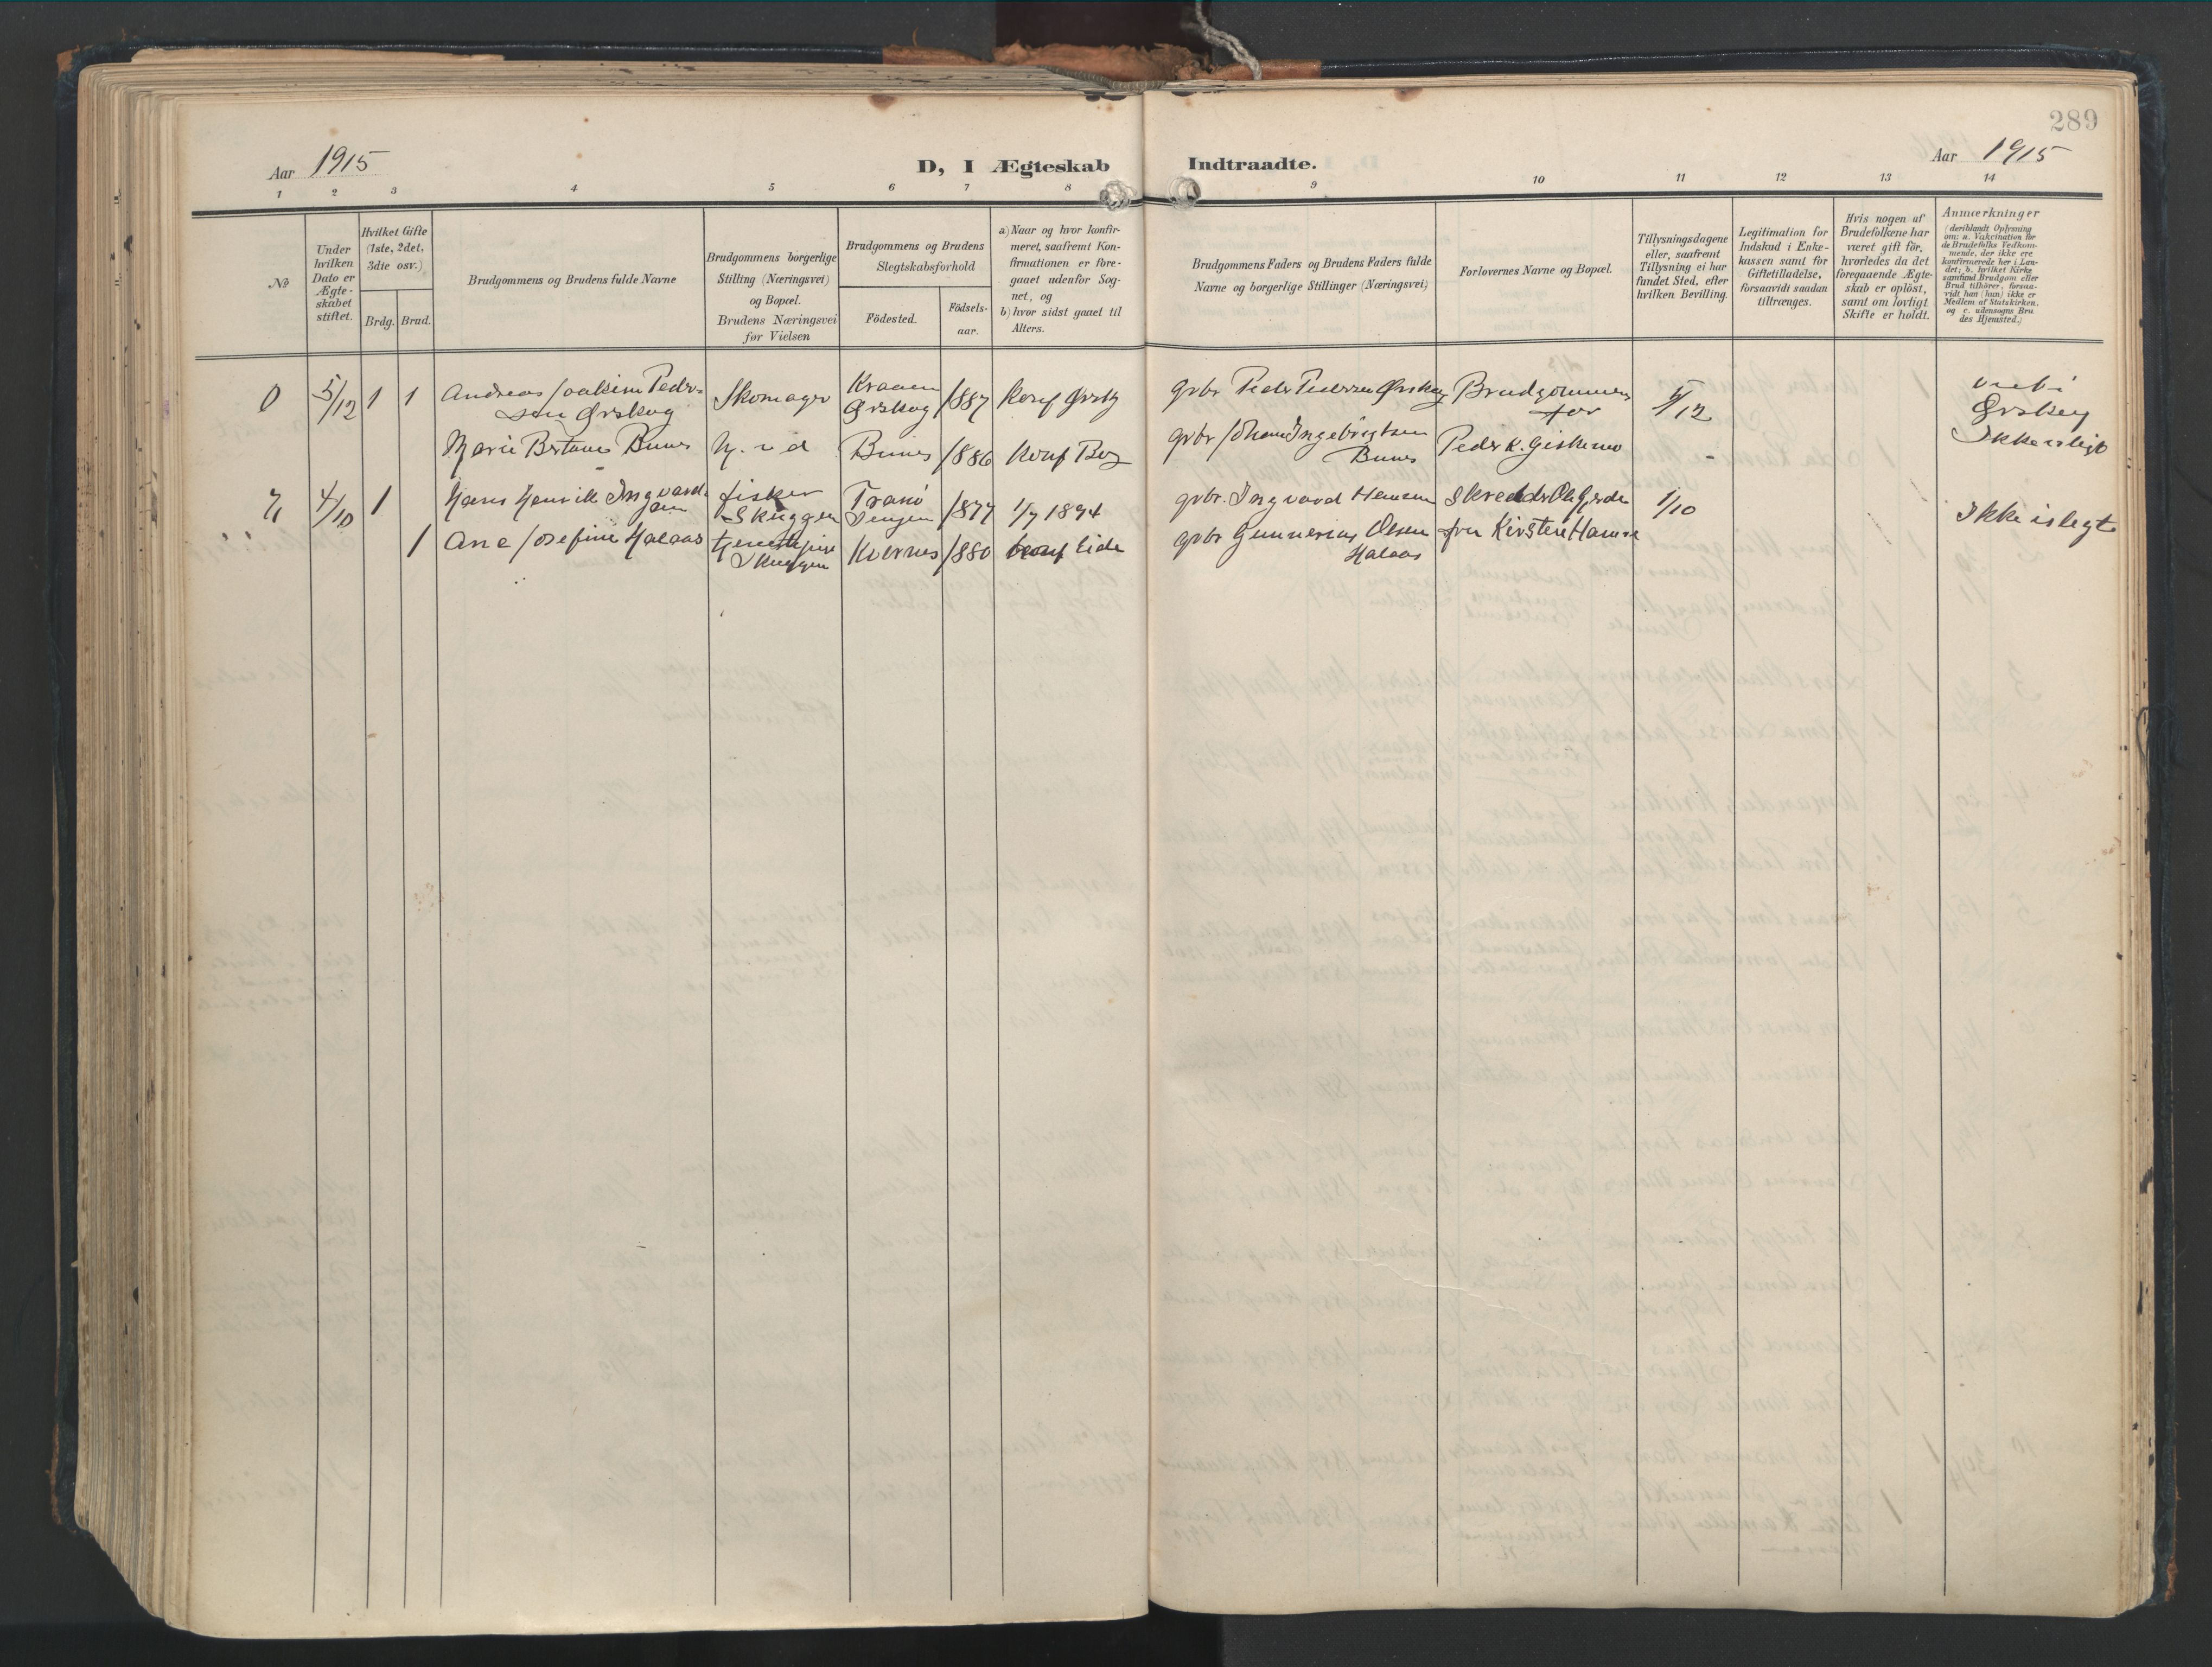 289
Aar 1915
D, I Ægteskab Indtraadte.
Aar 1915
1 2 3 4 5 6 7 8 9 10 11 12 13 14
No
Under
hvilken
Dato er
Ægte-
skabet
stiftet.
Hvilket Gifte
(1ste, 2det,
3die osv.)
Brdg. Brud.
Brudgommens og Brudens fulde Navne
Brudgommens borgerlige
Stilling (Næringsvei)
og Bopæl.
Brudens Næringsvei
før Vielsen
Brudgommens og Brudens
Slegtskabsforhold
Födested.
Födsels-
aar.
a) Naar og hvor konfir-
meret, saafremt Kon-
firmationen er fore-
gaaet udenfor Sog-
net, og
b) hvor sidst gaaet til
Alters.
Brudgommens Faders og Brudens Faders fulde
Navne og borgerlige Stillinger (Næringsvei)
Forlovernes Navne og Bopæl.
Tillysningsdagene
eller, saafremt
Tillysning ei har
fundet Sted, efter
hvilken Bevilling.
Legitimation for
Indskud i Enke-
kassen samt for
Giftetilladelse,
forsaavidt saadan
tiltrænges.
Hvis nogen af
Brudefolkene har
været gift för,
hvorledes da det
foregaaende Ægte-
skab er oplöst,
samt om lovligt
Skifte er holdt.
Anmærkninger
(deriblandt Oplysning
om: a. Vakcination for
de Brudefolks Vedkom-
mende, der ikke ere
konfirmerede her i Lan-
det; b. hvilket Kirke
samfund Brudgom eller
Brud tilhörer, forsaa-
vidt han (hun) ikke er
Medlem af Statskirken.
og c. udensogns Bru
des Hjemsted.)
5/12 1 1 Andreas Joakim Peder-
sen Ørskog
Skomager
Kraaen
Ørskog
1887 Konf Ørsk
Grbr Peder Pedersen Ørskog
Brudgommen
far
5/12
viet i
Ørskog
Ikke islegt
Marie Bertane Bunes
Bunes 1886 Konf Borg
grbr Johan Ingebrigtsen
Bunes
Peder K. Giskemo
4/10 1 Hans Henrik Ingvard-
sen
fisker
Skuggen
Tranö
Senjen
1877 1/7 1894
grbr. Ingvard Hansen
Skredder Ol Gjerde
1/10
Ikke islegt
1 Ane Josefine Halaas
tjenestepige
Skuggen
Kvernes 1880 Konf Eide
grbr Gunnerius Olsen
Halaas
fru Kirsten Hamre